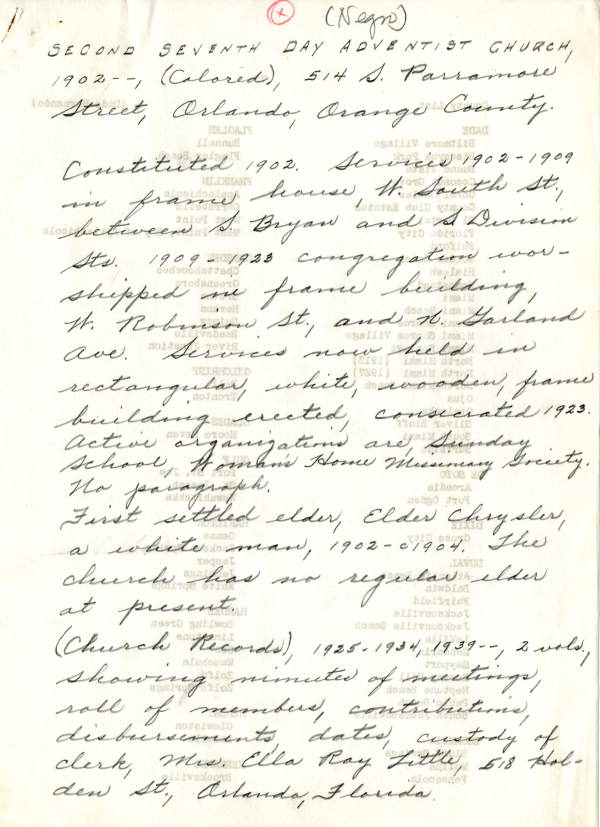 (Negro)
SECOND SEVENTH DAY ADVENTIST CHURCH,
1902--, (Colored), 514 S. Parramore
Street, Orlando, Orange County.
Constituted 1902. Services 1902-1909
in frame house, W. South St.,
between S. Bryan and S. Division
Sts. 1909-1923 congregation wor-
shipped in frame building,
W. Robinson St., and N. Garland
Ave. Services now held in
rectangular, white, wooden, frame
building erected, consecrated 1923.
Active organizations are, Sunday
School, Woman's Home Missionary Society.
No paragraph.
First settled elder, Elder Chrysler,
a white man, 1902-c1904. The
church has no regular elder
at present.
(Church Records), 1925-1934, 1939--, 2 vols.,
showing minutes of meetings,
roll of members, contributions,
disbursements, dates, custody of
clerk, Mrs. Ella Ray Little, 518 Hol-
den St., Orlando, Florida.